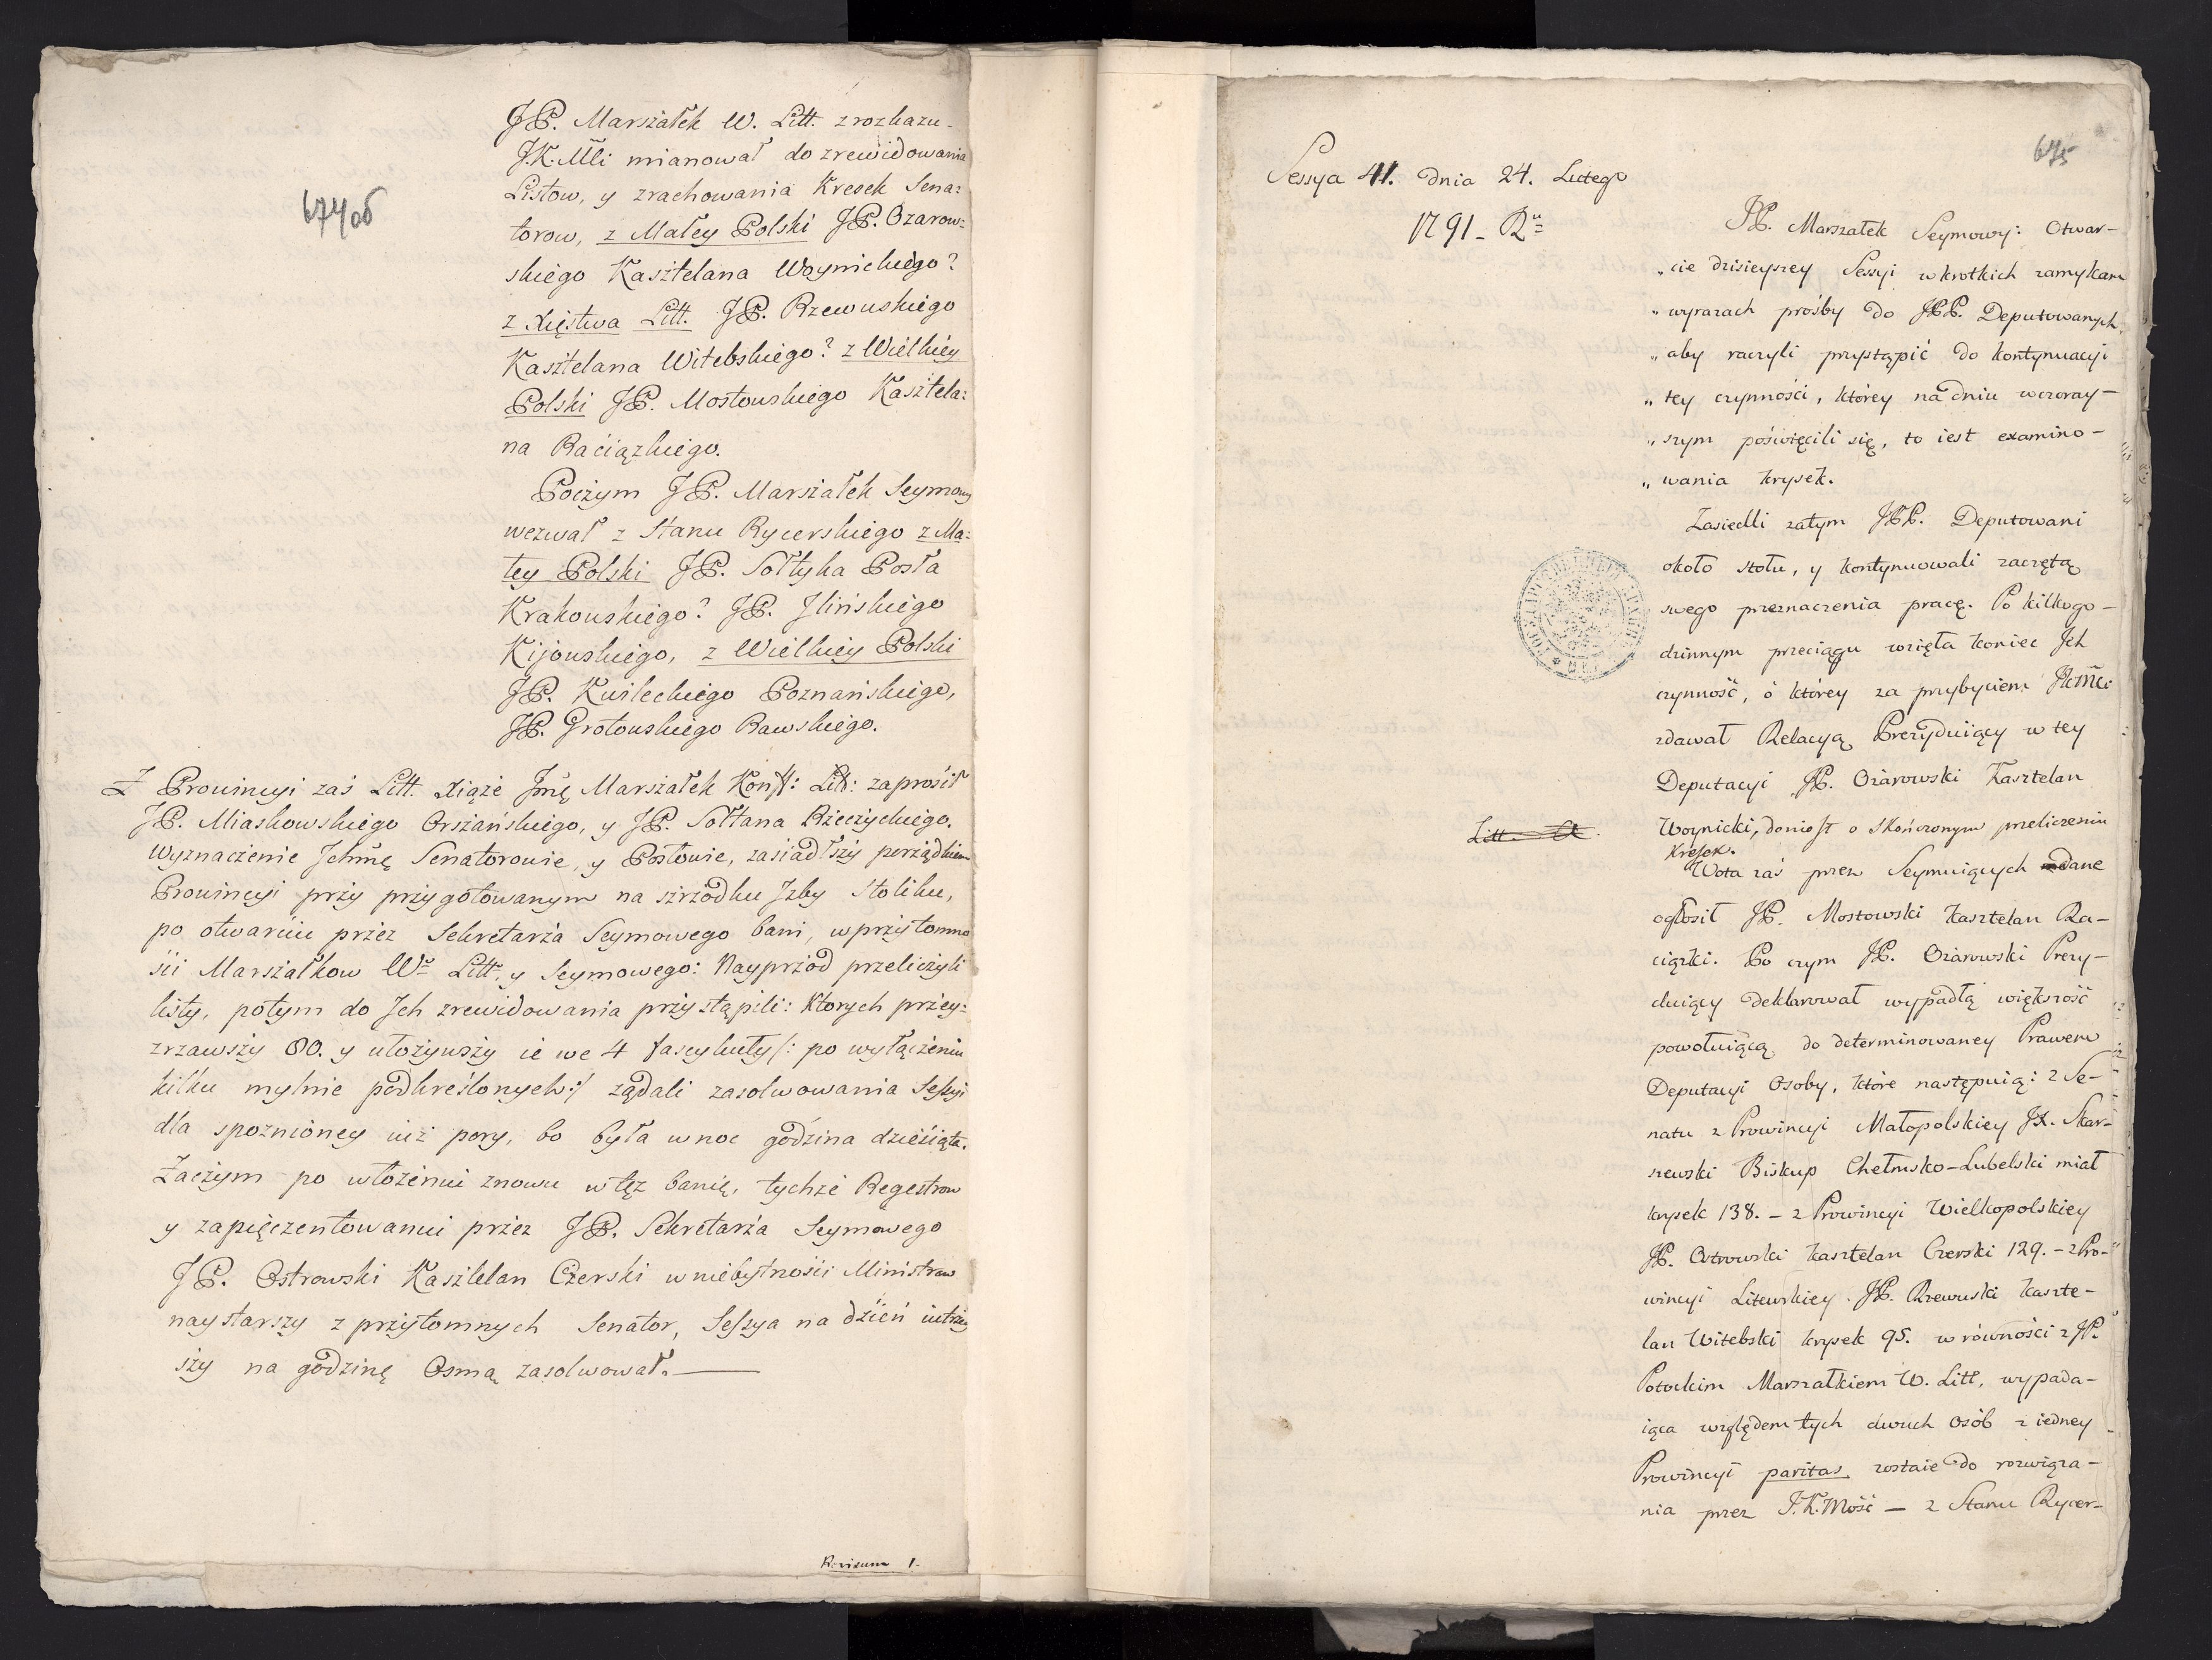 674 об
JP. Marszałek W. Litt. z rozkazu
J.K.Mći mianował do zrewidowania
Listow, y zrachowania Kresek Sena:
torow, z Małey Polski JP. Ozarow:
skiego Kasztelana Woynickiego?
z Xięstwa Litt. JP. Rzewuskiego
Kasztelana Witebskiego? z Wielkiey
Polski JP. Mostowskiego Kasztela:
na Raciązkiego.
Poczym JP. Marszałek Seymowy
wezwał z Stanu Rycerskiego z Ma:
łey Polski JP. Sołtyka Posła
Krakowskiego? JP. Jlińskiego
Kijowskiego, z Wielkiey Polski
JP. Kwileckiego Poznańskiego,
JP. Grotowskiego Rawskiego.
Z Prowincyi zaś Litt. Xiąże Jmę Marszałek Konff: Litt: zaprosił
JP. Miaskowskiego Orszańskiego, y JP. Sołtana Rzeczyckiego.
Wyznaczenie Jchmę Senatorowie, y Posłowie, zasiadłszy porządkiem
Prowincyi przy przygotowanym na szrzodku Jzby Stoliku,
po otwarciu przez Sekretarza Seymowego bani, w przytomno
ści Marszałkow W. Litt. y Seymowego: Nayprzod przeliczyli
listy, potym do Jch zrewidowania przystąpili: Ktorych przey:
zrzawszy 80. y ułożywszy ie we 4 fascykuły /: po wyłączeniu
kilku mylnie podkreślonych :/ ządali zasolwowania Sessyi
dla spoznioney iuż pory, bo była w noc godzina dziesiąta.
Zaczym po włożeniu znowu w tęż banię, tychże Regestrow
y zapięczentowaniu przez JP. Sekretarza Seymowego
JP. Ostrowski Kasztelan Czerski w niebytności Ministrow
naystarszy z przytomnych Senator, Sessya na dzień iutrzey
szy na godzinę Osmą zasolwował.
Revisum 1.
675
Sessya 41. dnia 24. Lutego
1791 - Ru
JP. Marszałek Seymowy: Otwar-
„cie dzisieyszey Sessyi w krotkich zamykam
„wyrazach prośby do JPP. Deputowanych,
„aby raczyli przystąpić do kontynuacyi
„tey czynności, którey na dniu wczoray-
„szym poświęcili się, to iest examino-
„wania krysek.
Zasiedli zatym JPP. Deputowani
około stołu, y kontynuowali zaczętą
swego przeznaczenia pracę. Po kilkogo-
dzinnym przeciągu wzięła koniec Jch
czynność, o którey za przybyciem JKMci
zdawał Relacyą Prezyduiący w tey
Deputacyi JP. Ożarowski Kasztelan
Litt. A.
Woynicki, doniosł o skończonym przeliczeniu
Kresek.
Wota zaś przez Seymuiących dane
ogłosił JP. Mostowski Kasztelan Ra-
ciązki. Po czym JP. Ożarowski Prezy-
duiący deklarował wypadłą większość
powołuiącą do determinowaney Prawem
Deputacyi Osoby, które następuią: z Se-
natu z Prowincyi Małopolskiey JX. Skar-
szewski Biskup Chełmsko-Lubelski miał
krysek 138. - z Prowincyi Wielkopolskiey
JP. Ostrowski Kasztelan Czerski 129. - z Pro-
wincyi Litewskiey JP. Rzewuski Kaszte-
lan Witebski krysek 95. w równości z JP.
Potockim Marszałkiem W. Litt, wypada-
iąca względem tych dwuch Osób z iedney
Prowincyi paritas zostaie do rozwiąza-
nia przez J.K.Mość — z Stanu Rycer-